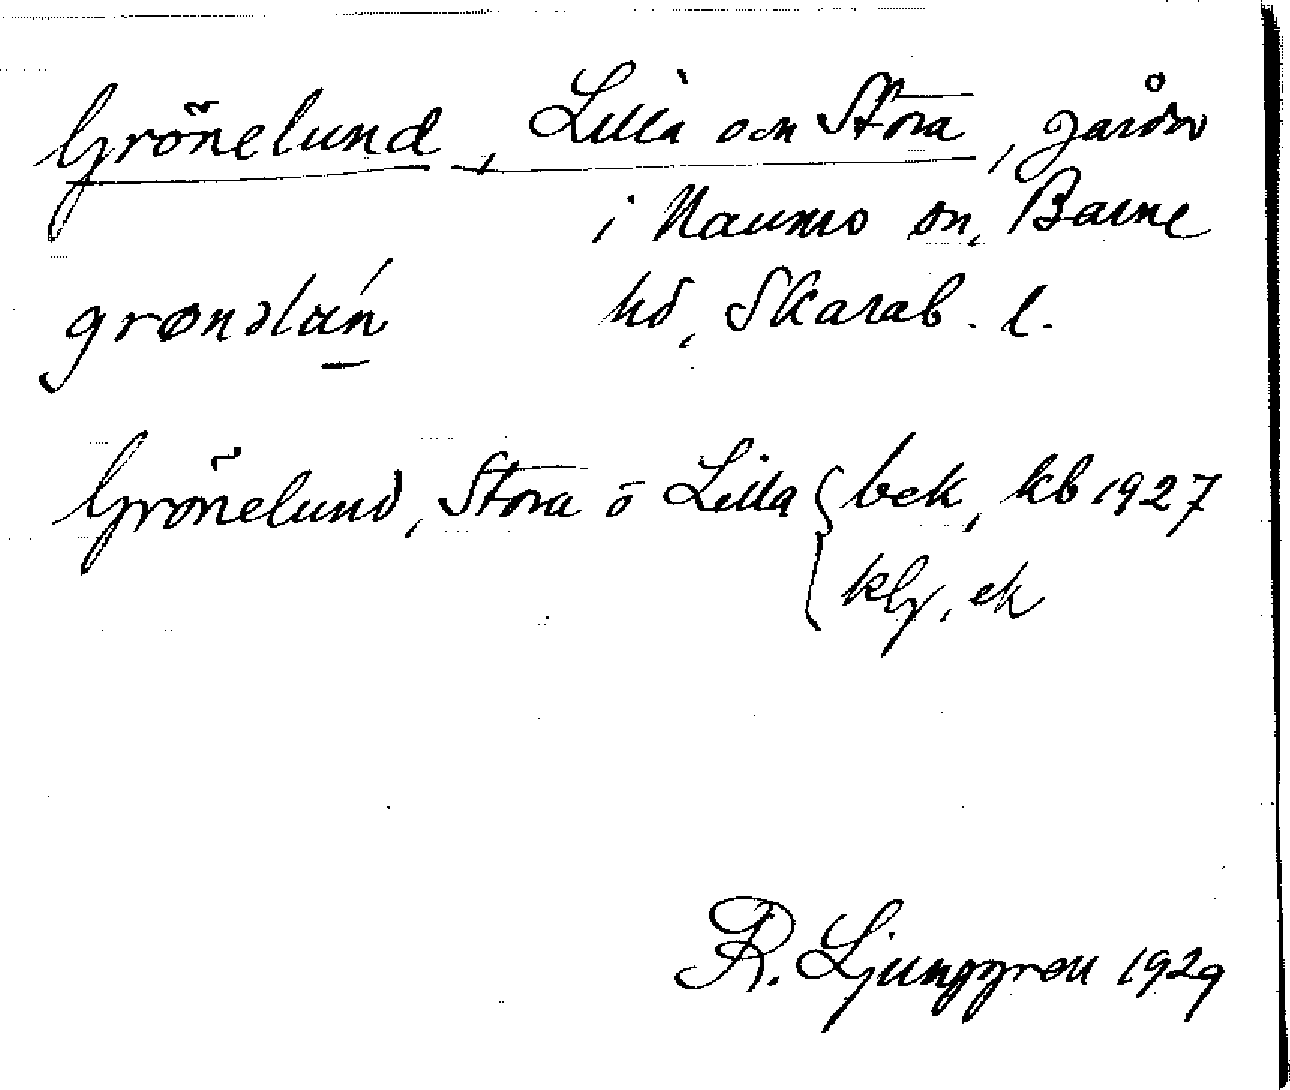 Grönelund, Lilla och Stora, gårdar
i Naumo sn, Barne
grønəlún hd, Skarab. l.
Grönelund, Stora o Lilla { bek, kb 1927
klg, ek
R. Ljunggren 1929